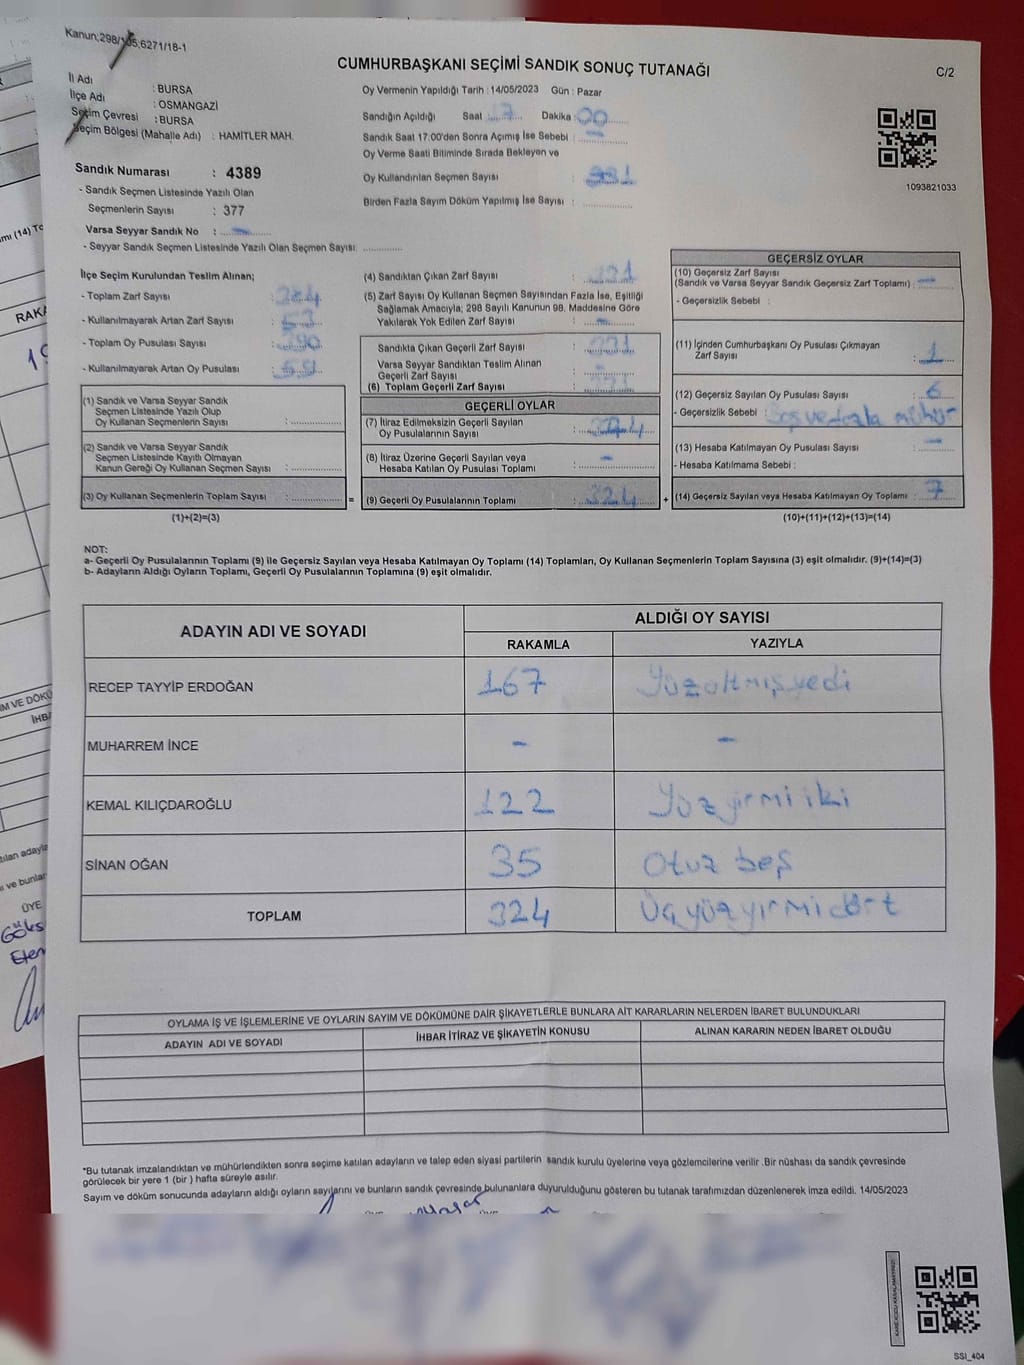 Kanun;298/105;6271/18-1
CUMHURBAŞKANI SEÇİMİ SANDIK SONUÇ TUTANAĞI
C/2
İl Adı : BURSA
İlçe Adı : OSMANGAZİ
Seçim Çevresi : BURSA
Seçim Bölgesi (Mahalle Adı) : HAMİTLER MAH.
Oy Vermenin Yapıldığı Tarih : 14/05/2023 Gün : Pazar
Sandığın Açıldığı Saat Dakika : 00
Sandık Saat 17:00'den Sonra Açımış İse Sebebi : -
Oy Verme Saati Bitiminde Sırada Bekleyen ve
Oy Kullandırılan Seçmen Sayısı :
Birden Fazla Sayım Döküm Yapılmış İse Sayısı :
1093821033
Sandık Numarası : 4389
- Sandık Seçmen Listesinde Yazılı Olan
Seçmenlerin Sayısı : 377
Varsa Seyyar Sandık No : -
- Seyyar Sandık Seçmen Listesinde Yazılı Olan Seçmen Sayısı:
İlçe Seçim Kurulundan Teslim Alınan;
- Toplam Zarf Sayısı :
- Kullanılmayarak Artan Zarf Sayısı : 53
- Toplam Oy Pusulası Sayısı :
- Kullanılmayarak Artan Oy Pusulası : 59
(1) Sandık ve Varsa Seyyar Sandık
Seçmen Listesinde Yazılı Olup
Oy Kullanan Seçmenlerin Sayısı :
(2) Sandık ve Varsa Seyyar Sandık
Seçmen Listesinde Kayıtlı Olmayan
Kanun Gereği Oy Kullanan Seçmen Sayısı :
(3) Oy Kullanan Seçmenlerin Toplam Sayısı : =
(1)+(2)=(3)
(4) Sandıktan Çıkan Zarf Sayısı :
(5) Zarf Sayısı Oy Kullanan Seçmen Sayısından Fazla İse, Eşitliği
Sağlamak Amacıyla; 298 Sayılı Kanunun 98. Maddesine Göre
Yakılarak Yok Edilen Zarf Sayısı : -
Sandıkta Çıkan Geçerli Zarf Sayısı :
Varsa Seyyar Sandıktan Teslim Alınan
Geçerli Zarf Sayısı :
(6) Toplam Geçerli Zarf Sayısı :
GEÇERLİ OYLAR
(7) İtiraz Edilmeksizin Geçerli Sayılan
Oy Pusulalarının Sayısı :
(8) İtiraz Üzerine Geçerli Sayılan veya
Hesaba Katılan Oy Pusulası Toplamı : -
(9) Geçerli Oy Pusulalarının Toplamı : 324 +
GEÇERSİZ OYLAR
(10) Geçersiz Zarf Sayısı
(Sandık ve Varsa Seyyar Sandık Geçersiz Zarf Toplamı) : -
- Geçersizlik Sebebi :
(11) İçinden Cumhurbaşkanı Oy Pusulası Çıkmayan
Zarf Sayısı : 1
(12) Geçersiz Sayılan Oy Pusulası Sayısı : 6
- Geçersizlik Sebebi : Boş ve fazla mühür
(13) Hesaba Katılmayan Oy Pusulası Sayısı : -
- Hesaba Katılmama Sebebi :
(14) Geçersiz Sayılan veya Hesaba Katılmayan Oy Toplamı : 7
(10)+(11)+(12)+(13)=(14)
NOT:
a- Geçerli Oy Pusulalarının Toplamı (9) ile Geçersiz Sayılan veya Hesaba Katılmayan Oy Toplamı (14) Toplamları, Oy Kullanan Seçmenlerin Toplam Sayısına (3) eşit olmalıdır. (9)+(14)=(3)
b- Adayların Aldığı Oyların Toplamı, Geçerli Oy Pusulalarının Toplamına (9) eşit olmalıdır.
ADAYIN ADI VE SOYADI ALDIĞI OY SAYISI
RAKAMLA YAZIYLA
RECEP TAYYİP ERDOĞAN 167 Yüzaltmışyedi
MUHARREM İNCE - -
KEMAL KILIÇDAROĞLU 122 Yüzyirmiiki
SİNAN OĞAN 35 Otuz beş
TOPLAM 324 Üçyüzyirmidört
OYLAMA İŞ VE İŞLEMLERİNE VE OYLARIN SAYIM VE DÖKÜMÜNE DAİR ŞİKAYETLERLE BUNLARA AİT KARARLARIN NELERDEN İBARET BULUNDUKLARI
ADAYIN ADI VE SOYADI İHBAR İTİRAZ VE ŞİKAYETİN KONUSU ALINAN KARARIN NEDEN İBARET OLDUĞU
*Bu tutanak imzalandıktan ve mühürlendikten sonra seçime katılan adayların ve talep eden siyasi partilerin sandık kurulu üyelerine veya gözlemcilerine verilir .Bir nüshası da sandık çevresinde
görülecek bir yere 1 (bir ) hafta süreyle asılır.
Sayım ve döküm sonucunda adayların aldığı oyların sayılarını ve bunların sandık çevresinde bulunanlara duyurulduğunu gösteren bu tutanak tarafımızdan düzenlenerek imza edildi. 14/05/2023
SSI_404